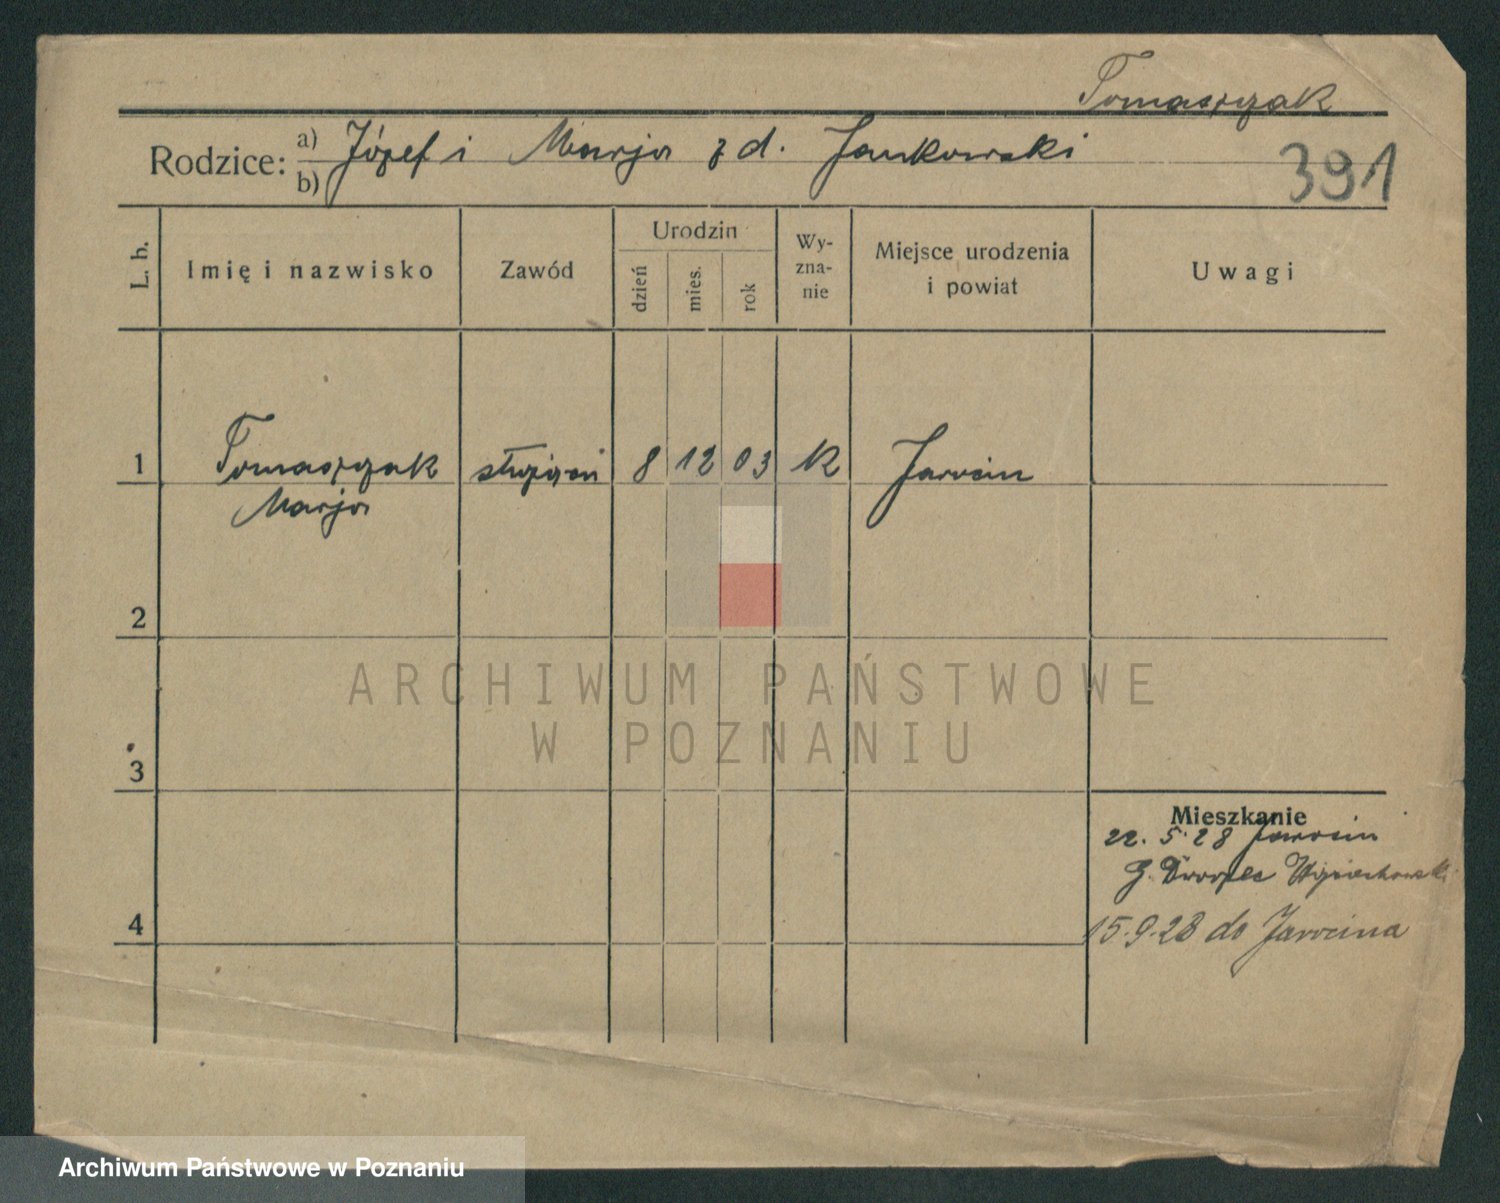 Tomaszczak
Rodzice: a) Józef i Marja z d. Jankowski
b)
391
L. b.
Imię i nazwisko
Zawód
Urodzin
dzień
mies.
rok
Wy-
zna-
nie
Miejsce urodzenia
i powiat
Uwagi
1 Tomaszczak 8 12 03 K Jarocin
Marja
2
ARCHIWUM PAŃSTWOWE
W POZNANIU
3
Mieszkanie
22. 5. 28 Jarocin
Wojciechowski
4 15. 9. 28 do Jarocina
Archiwum Państwowe w Poznaniu